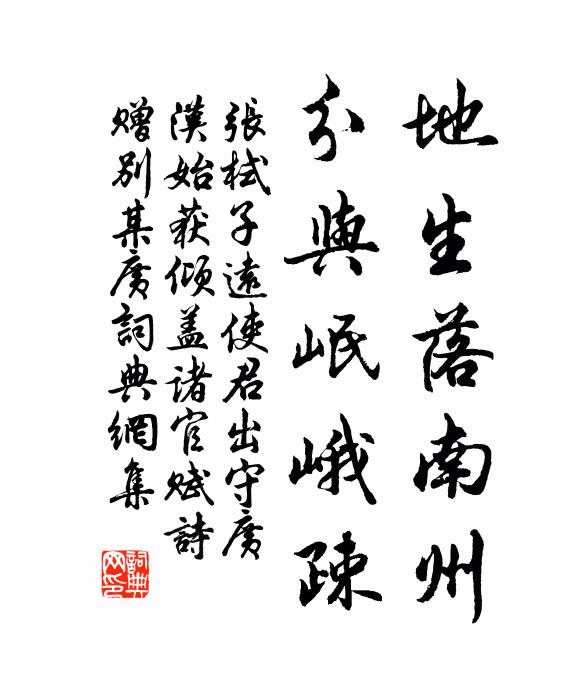 地生落南州
分與岷峨疎
張栻子遠使君出守廣
漢始获傾盖諸官赋詩
赠别某廣詞典網集
詞典网印